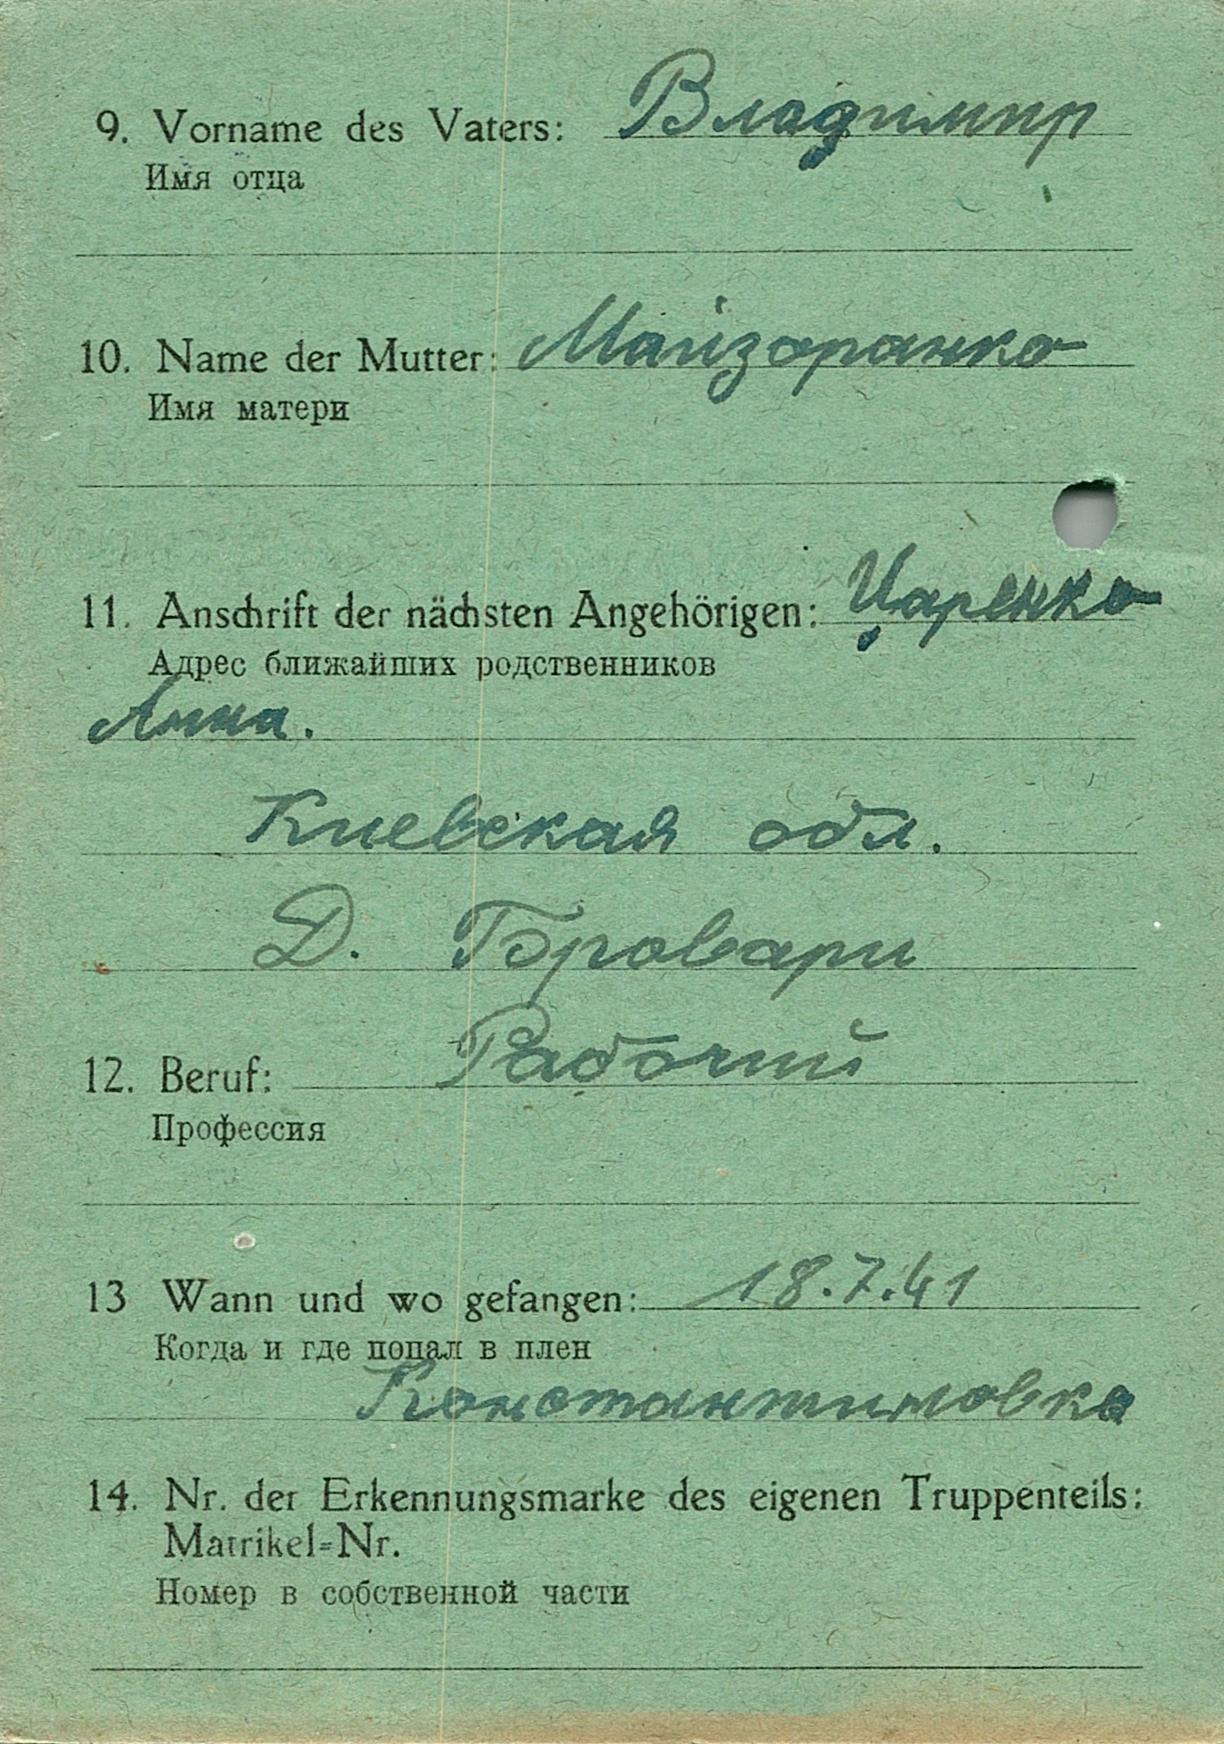 9. Vorname des Vaters: Владимир
Имя отца
10. Name der Mutter: Майзаранко
Имя матери
11. Anschrift der nächsten Angehörigen: Царенко
Адрес ближайших родственников
Анна.
Киевская обл.
Д. Боровари
12. Beruf: Рабочий
Профессия
13 Wann und wo gefangen: 18.7.41
Когда и где попал в плен
Константиновка
14. Nr. der Erkennungsmarke des eigenen Truppenteils:
Matrikel=Nr.
Номер в собственной части